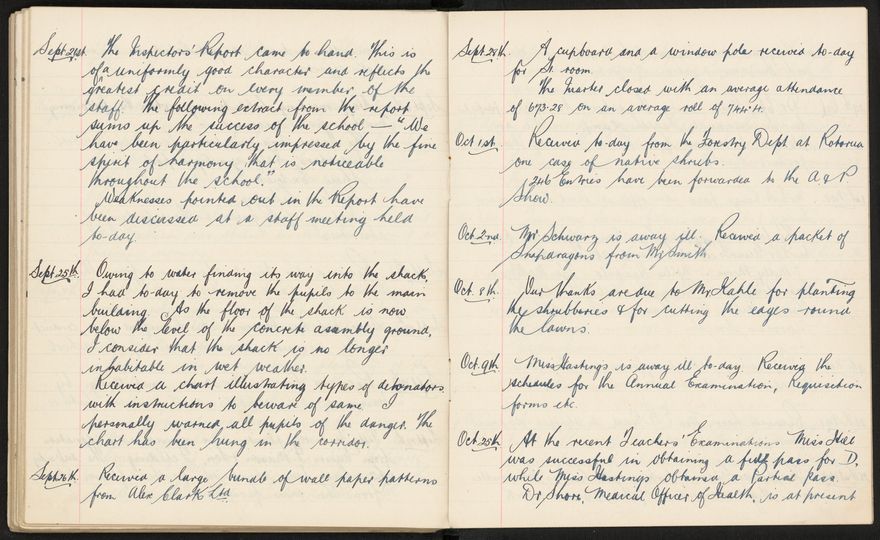 Sept. 21st. The Inspectors' Report came to hand. This is
of a uniformly good character and reflects the
greatest credit on every member of the
staff. The following extract from the report
sums up the success of the school — "We
have been particularly impressed by the fine
spirit of harmony that is noticeable
throughout the school."
Weaknesses pointed out in the Report have
been discussed at a staff meeting held
to-day.
Sept. 25th. Owing to water finding its way into the shack,
I had to-day to remove the pupils to the main
building. As the floor of the shack is now
below the level of the concrete assembly ground,
I consider that the shack is no longer
inhabitable in wet weather.
Received a chart illustrating types of detonators
with instructions to beware of same. I
personally warned all pupils of the danger. The
chart has been hung in the corridor.
Sept. 26th. Received a large bundle of wall paper patterns
from Alex Clark Ltd
Sept. 28th. A cupboard and a window pole received to-day
for St. room.
The Quarter closed with an average attendance
of 673.28 on an average roll of 744.4.
Oct 1st. Received to-day from the Forestry Dept at Rotorua
one case of native shrubs.
246 Entries have been forwarded to the A & P
Show.
Oct. 2nd. Mr Schwarz is away ill. Received a packet of
Snapdragons from Mr Smith.
Oct. 8th. Our thanks are due to Mr. Kahle for planting
the shrubberies & for cutting the edges round
the lawns.
Oct. 9th. Miss Hastings is away ill to-day. Receivig the
schedules for the Annual Examination, Requisition
forms etc.
Oct. 25th. At the recent Teachers' Examinations Miss Hill
was successful in obtaining a full pass for D,
while Miss Hastings obtained a Partial Pass.
Dr Shore, Medical Officer of Health, is at present